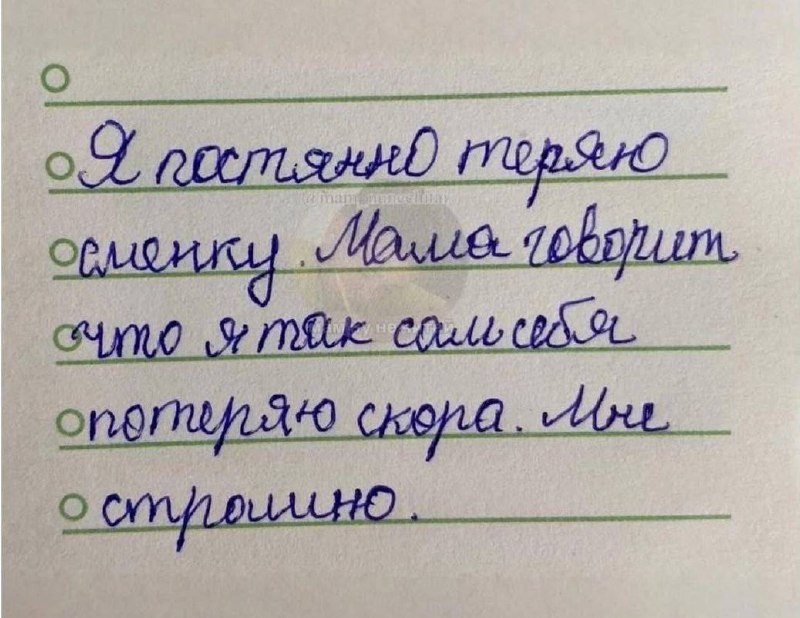 Я постянно теряю
сменку. Мама говорит,
что я так сам себя
потеряю скора. Мне
страшно.